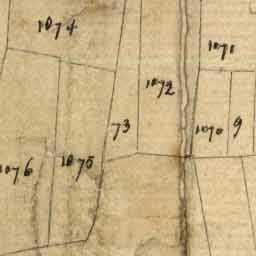 1074
1071
1072
73
1070
9
1076
1075